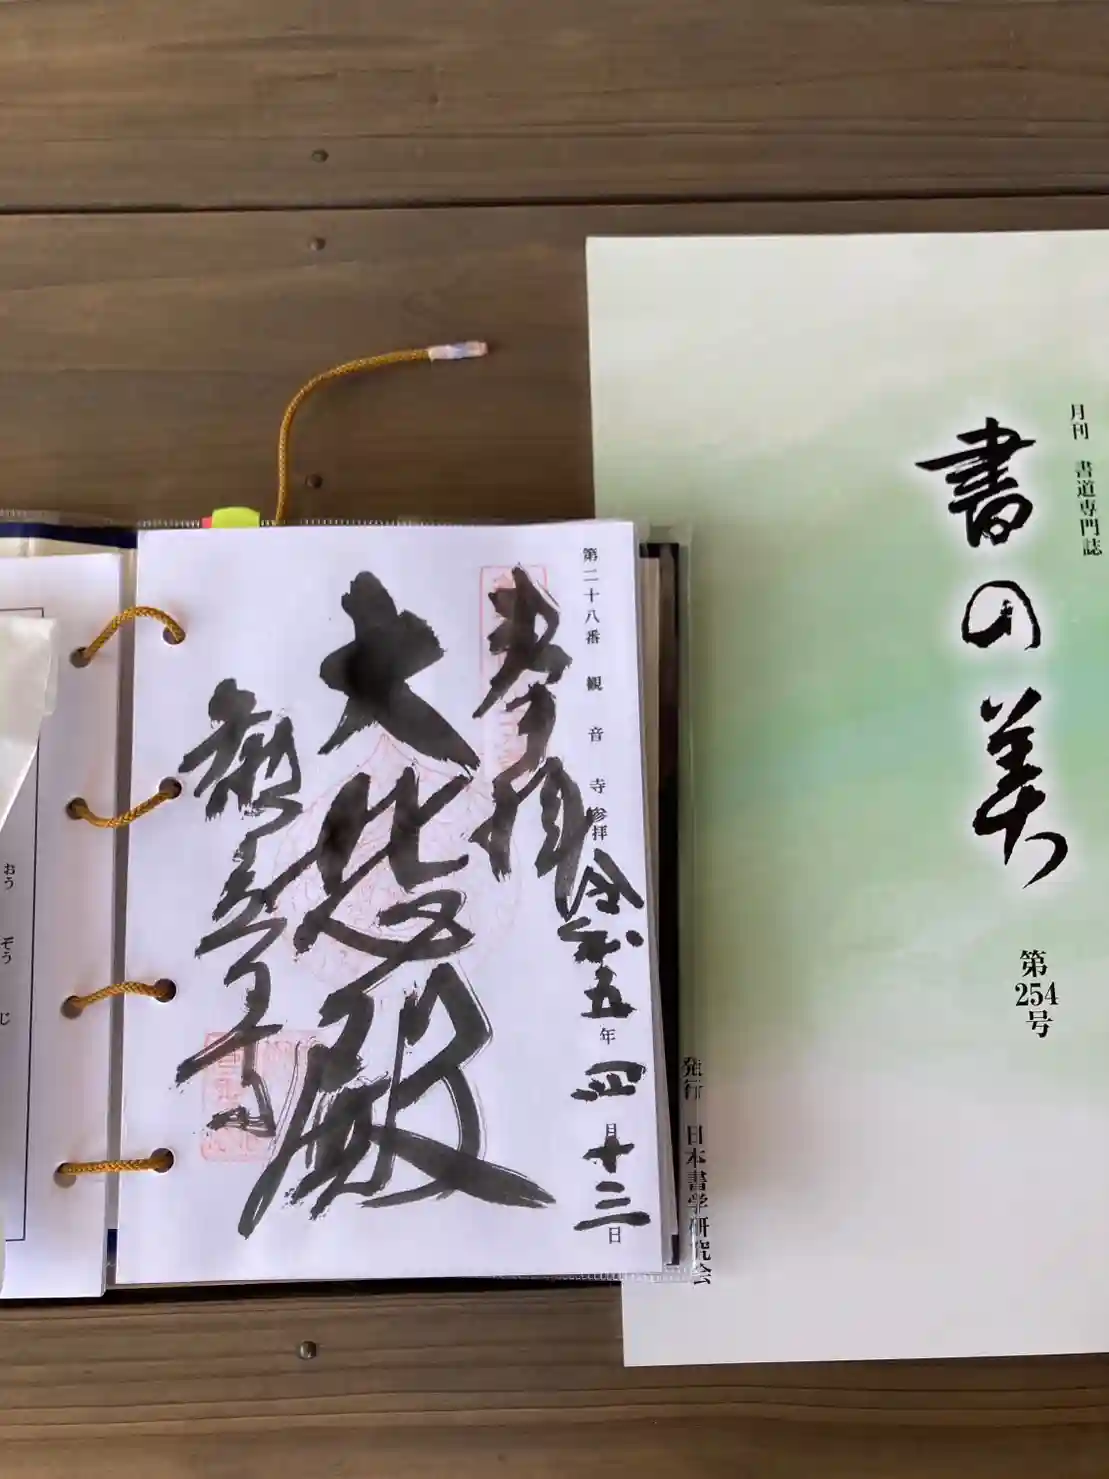 月刊 書道専門誌
書の美
第
254
号
発行 日本書学研究会
第二十八番 観音寺 参拝 令和五年四月十三日
奉拝
大悲殿
観音寺
おうぞうじ